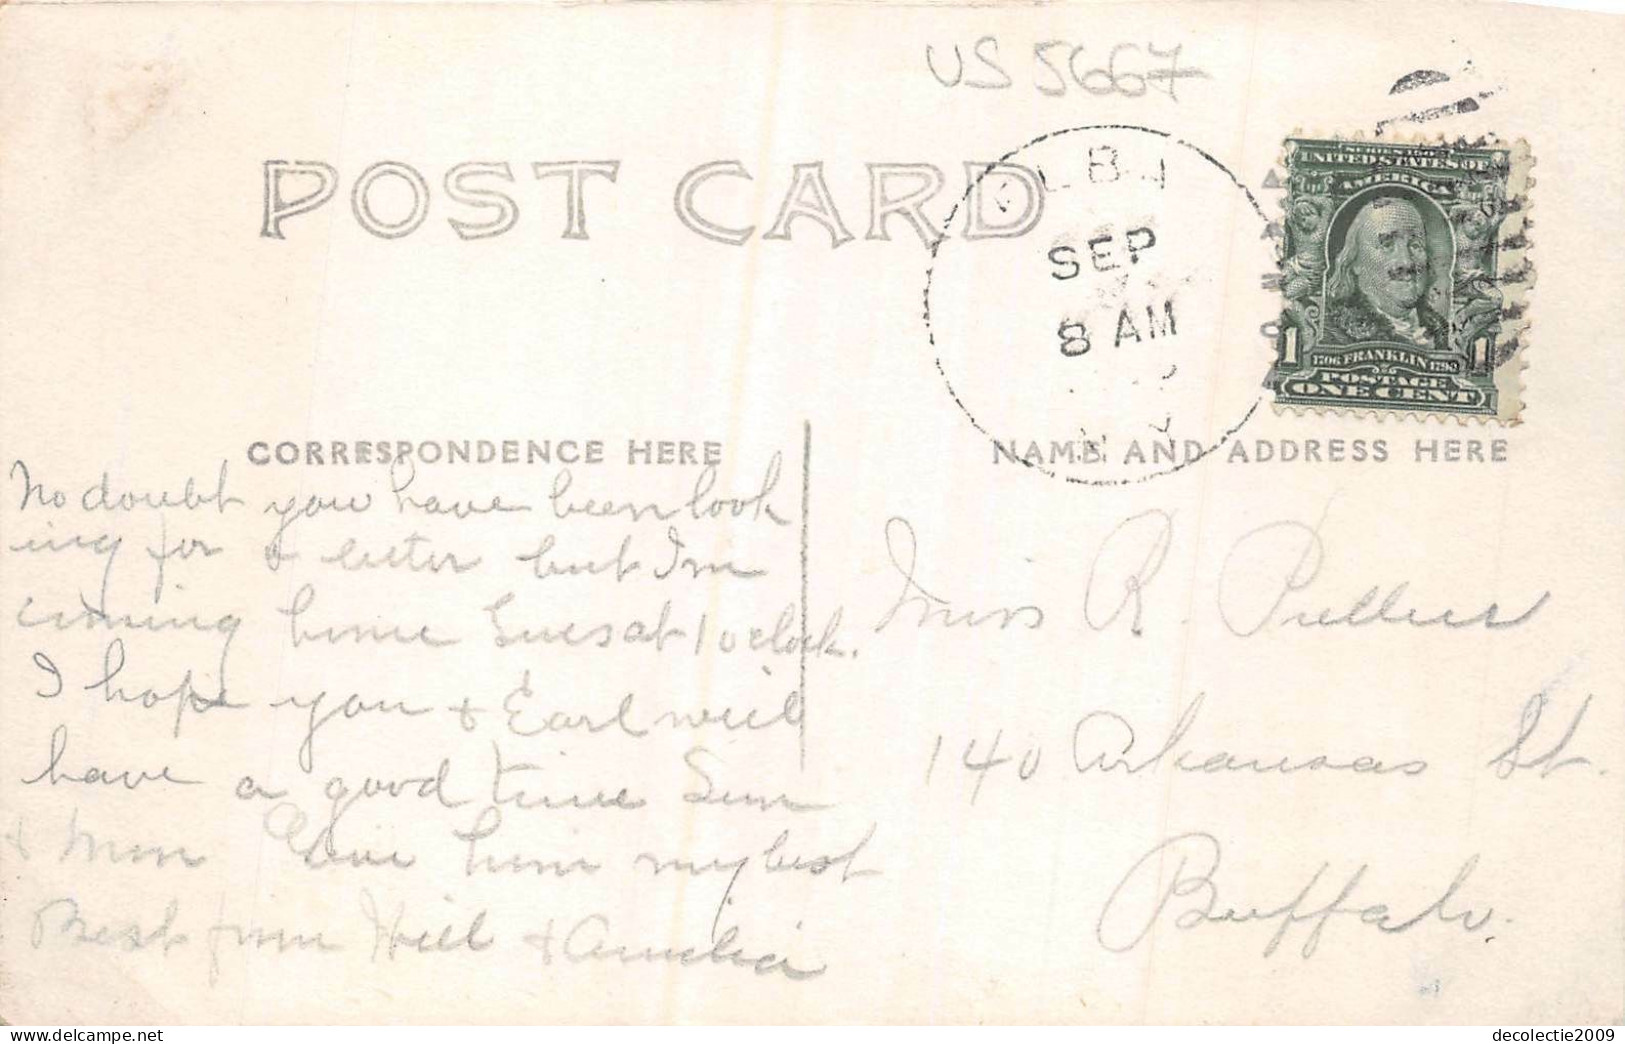 US 5667
POST CARD
SEP
8 AM
N Y
SERIES 1902
UNITED STATES OF
AMERICA
1 1706 FRANKLIN 1790 1
POSTAGE
ONE CENT
CORRESPONDENCE HERE
NAME AND ADDRESS HERE
No doubt you have been look
ing for a letter but Im
coming home Tues at 1 oclock.
I hope you + Earl will
have a good time Sun
+ Mon Give him my best
Best from Will + Amelia
Miss R.
140 Arkansas St.
Buffalo.
decolectie2009